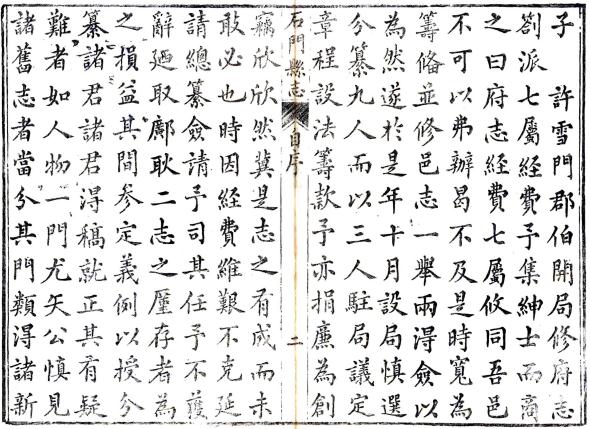 子　許雪門郡伯開局修府志
劄派七屬經費予集紳士而商
之曰府志經費七屬攸同吾邑
不可以弗辦曷不及是時寬為
籌俻並修邑志一舉兩得僉以
為然遂於是年十月設局慎選
分纂九人而以三人駐局議定
章程設法籌款予亦捐廉為創
石門縣志　自序　二
竊欣欣然冀是志之有成而未
敢必也時因経費維艱不克延
請總纂僉請予司其任予不獲
辭廼取鄺耿二志之厪存者為
之損益其間參定義例以授分
纂諸君諸君得稿就正其有疑
難者如人物一門尤矢公慎見
諸舊志者當分其門類得諸新